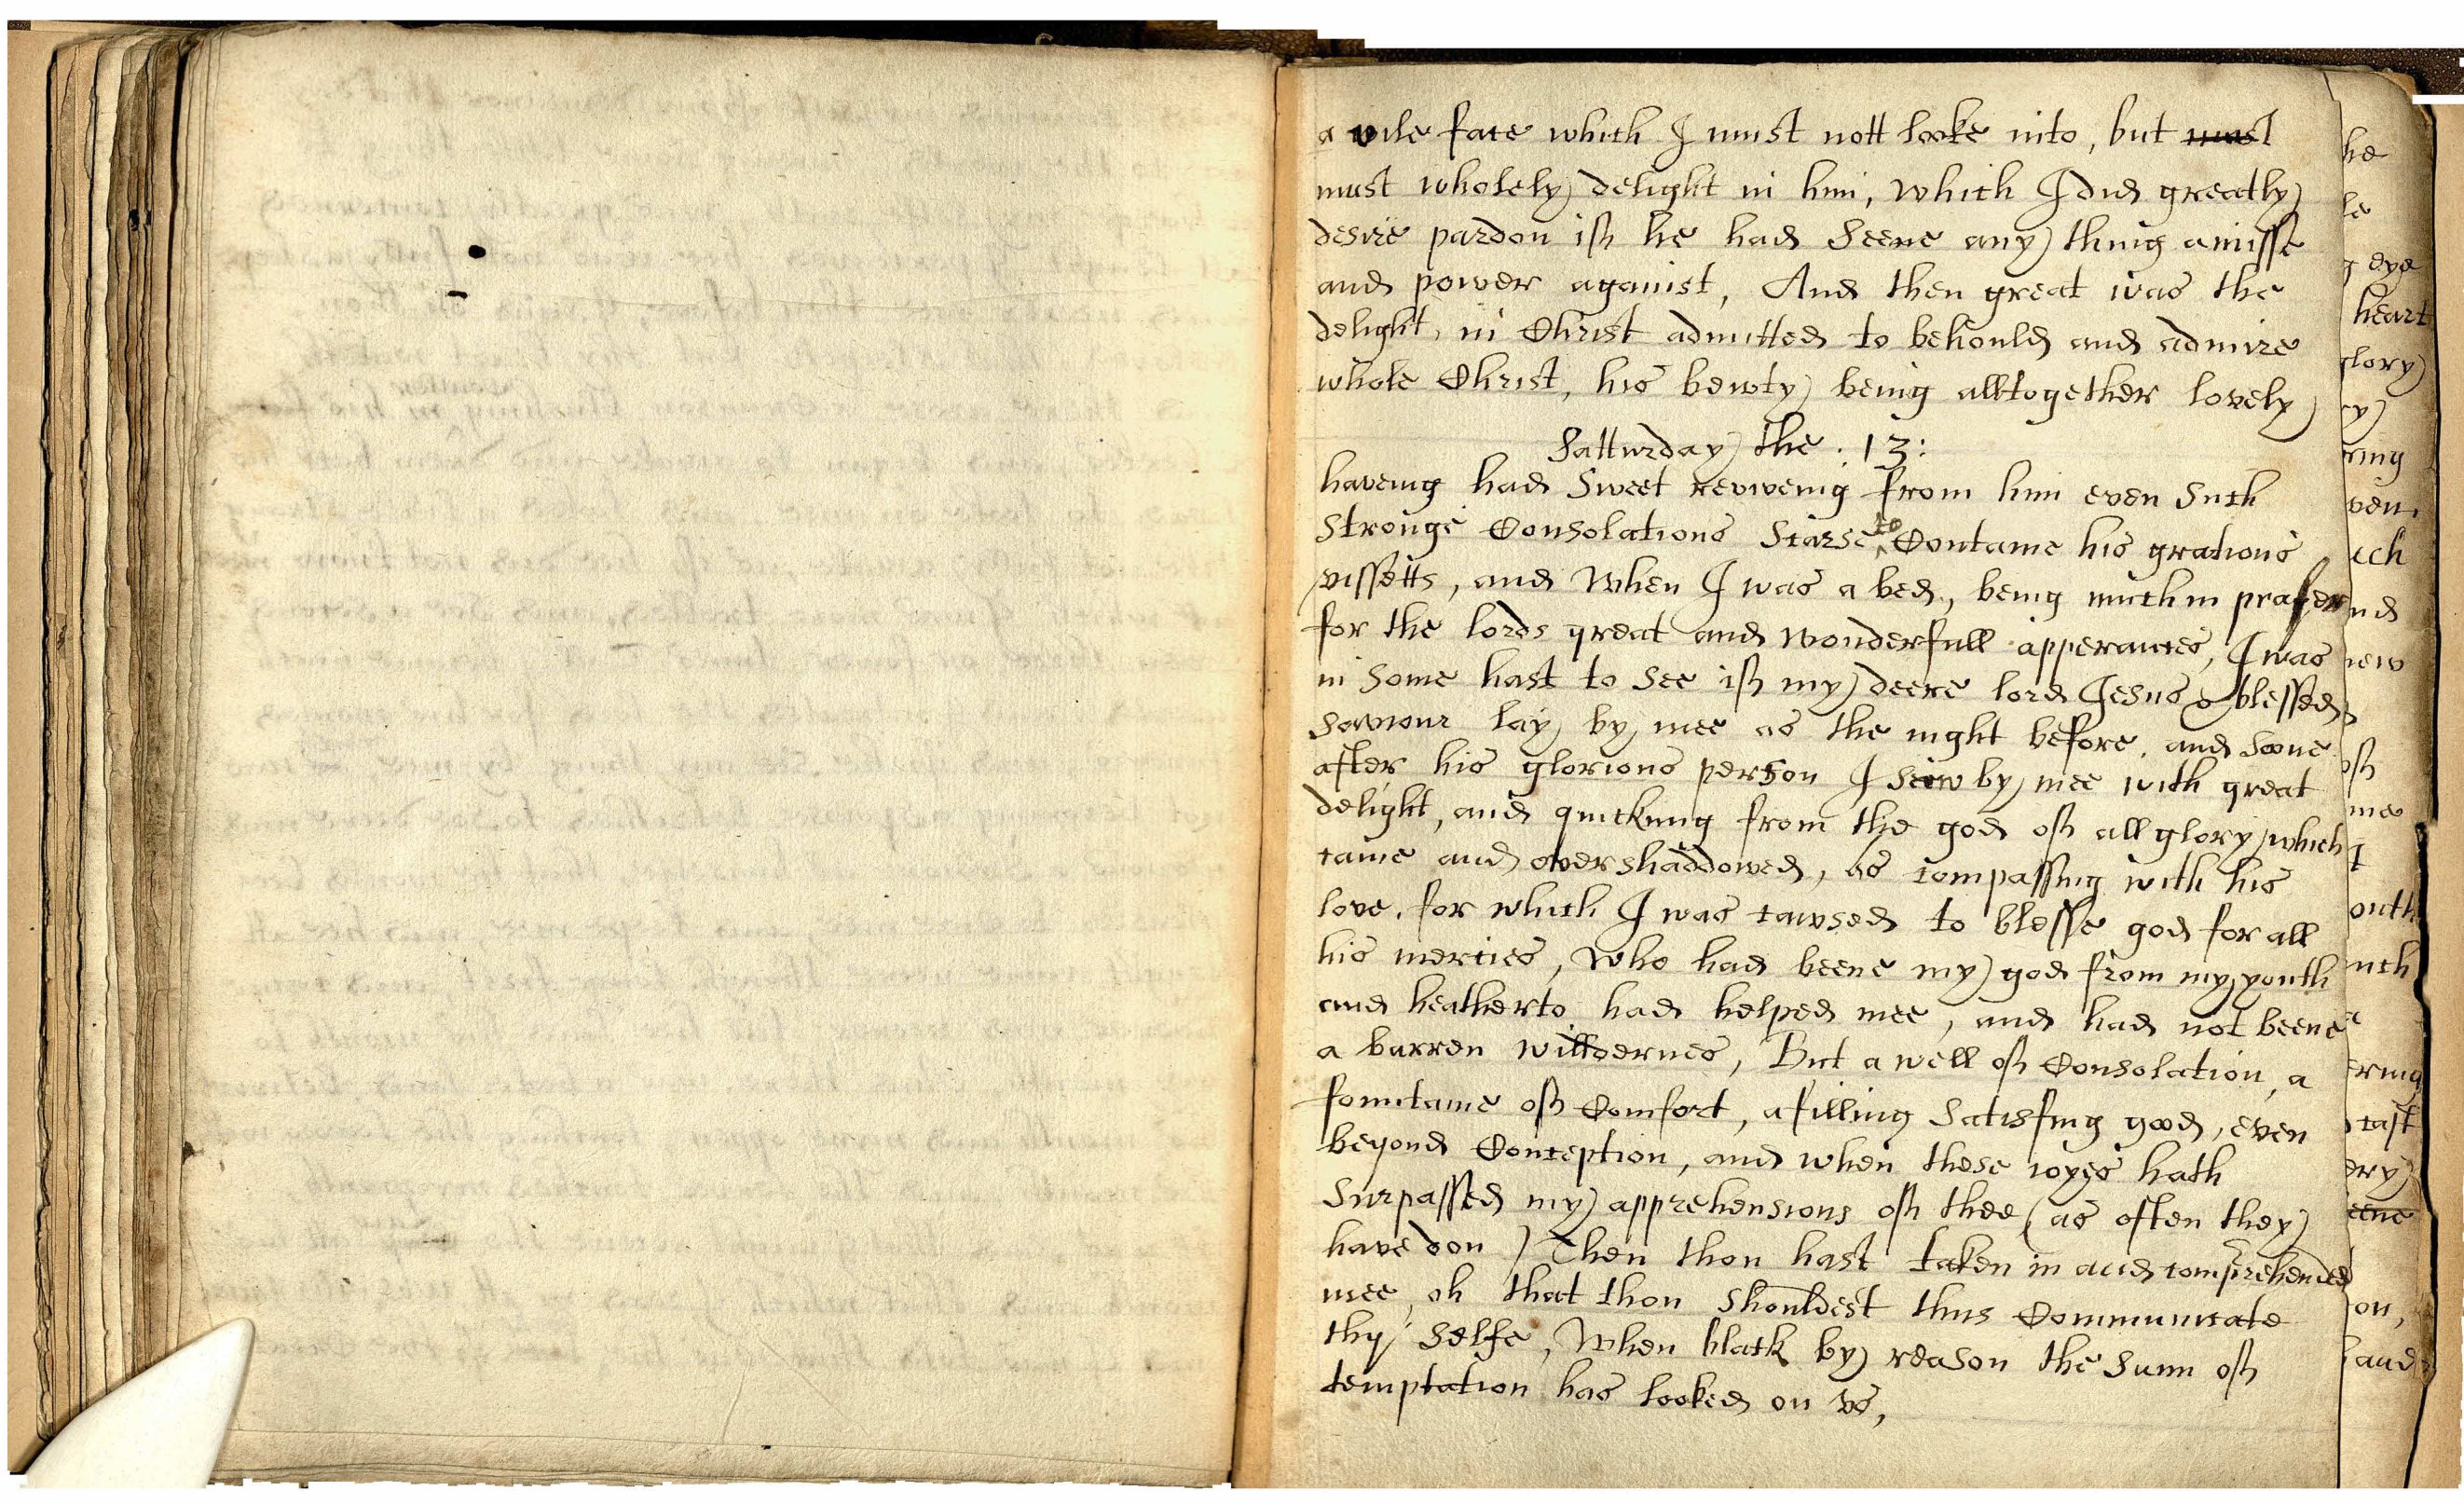 a vile face which I must nott looke into, but must
must wholely delight in him, which I did greatly
desire pardon if he had seene any thing amisse
and power against, And then great was the
delight, in Christ admitted to behould and admire
whole Christ, his bewty being alltogether lovely
Satturday the . 13:
haveing had sweet reviveing from him even such
stronge Consolations scarse to Containe his gratious
vissetts, and when I was a bed, being much in prayer
for the lords great and wonderfull apperances, I was
in some hast to see if my deere lord Jesus & blessed
saviour lay by mee as the night before, and soone
after his glorious person I saw by mee with great
delight, and quickning from the god of all glory which
came and overshaddowed, as compassing with his
love, for which I was cawsed to blesse god for all
his mercies, who had beene my god from my youth
and heatherto had helped mee, and had not beene
a barren willdernes, But a well of Consolation, a
fountaine of Comfort, a filling satisfing good, even
beyond Conception, and when these ioyes hath
surpassed my apprehensions of thee (as often they
have don) Then thou hast taken in and comprehended
mee, oh that thou shouldest thus Communicate
thy selfe, When black by reason the sunn of
temptation has looked on vs,
he
le
eye
heart
glory
ring
ven.
nd
new
of
me
I
outh
ering
tast
on,